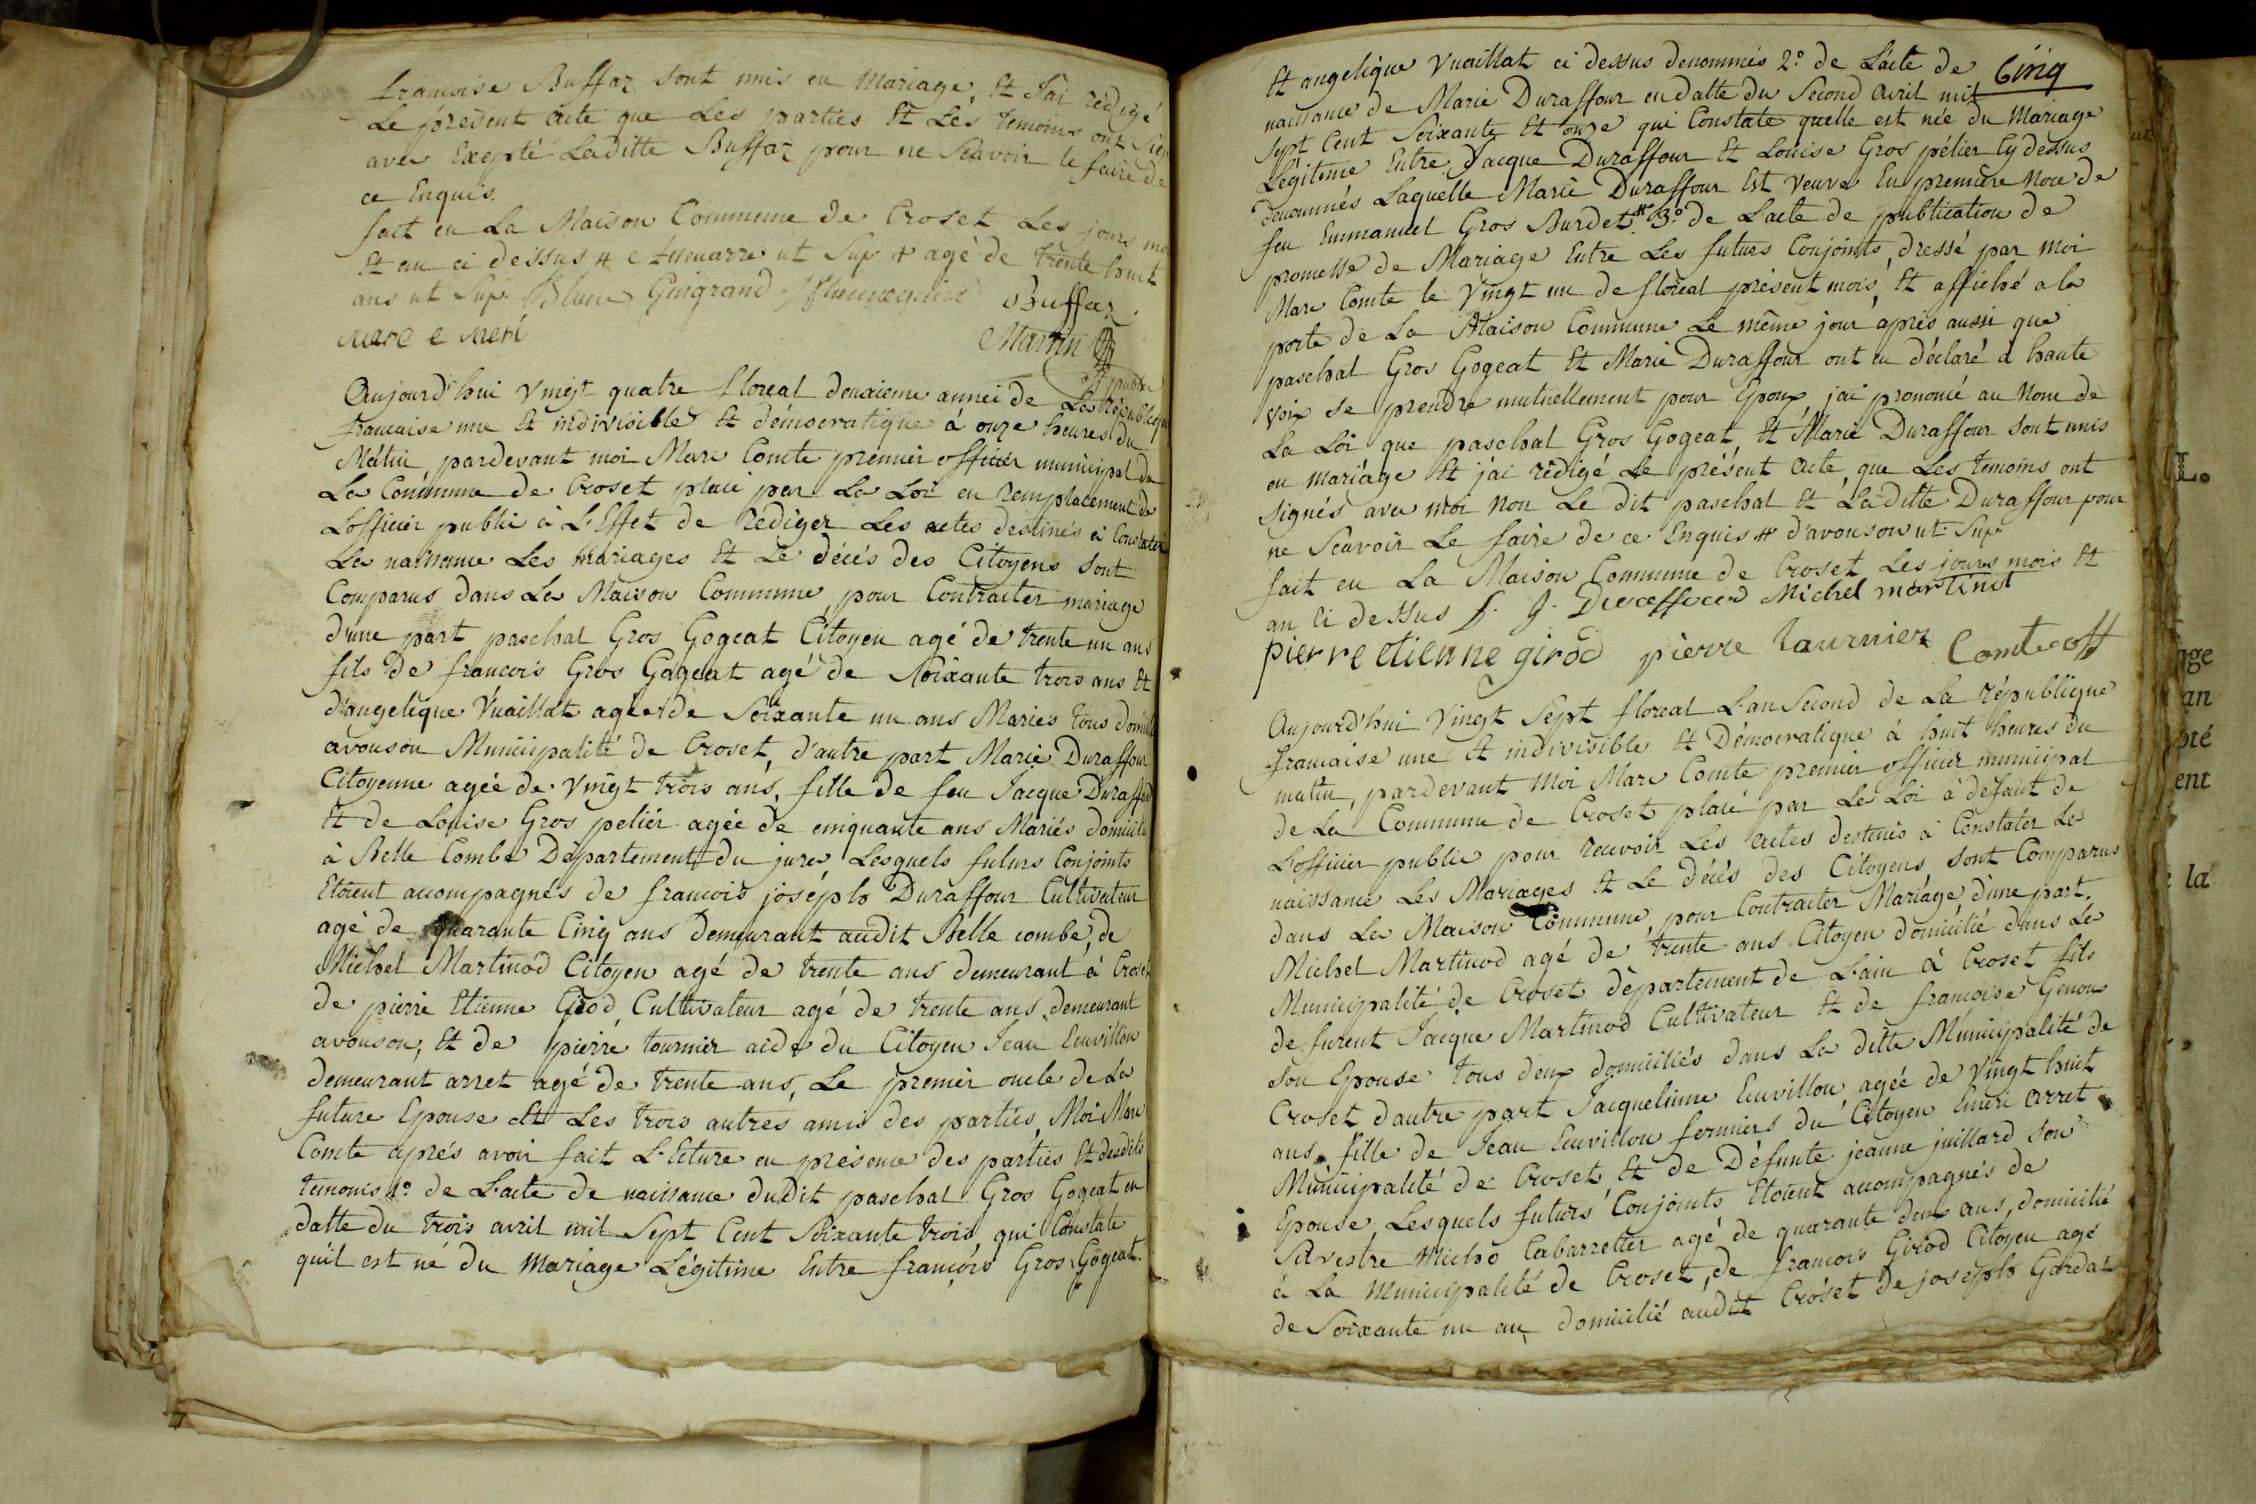 francoise Buffaz sont unis en Mariage, Et J'ai rédigé
Le présent Acte que Les parties Et Les temoins ont
avec Exepté Laditte Buffaz pour ne Scavoir le faire de
ce Enquis.
fait en La Maison Commune de Croset Les jours
Et an ci dessus # ut Sup # agé de trente huit
ans ut Sup. Blanc Guigrand Buffaz
Marc e Meri Martin
Aujourd'hui Vingt quatre floreal deuxieme année de La République
francaise une Et indivisible Et démocratique à onze heures du
Matin, pardevant moi Marc Comte premier officier municipal de
La Commune de Croset placé par La Loi en remplacement de
L'officier public à L'Effet de Rédiger Les actes destinés à Constater
La naissance Les mariages Et Le décés des Citoyens sont
Comparus dans La Maison Commune pour Contracter mariage
d'une part paschal Gros Gogeat Citoyen agé de trente un ans
fils de francois Gros Gogeat agé de Soixante trois ans Et
d'angelique Vuaillat agée de Soixante un ans Mariés tous
avouson Municipalité de Croset, d'autre part Marie Duraffour
Citoyenne agée de Vingt trois ans, fille de feu Jacque Duraffour
Et de Louise Gros pelier agée de cinquante ans Mariés
à Belle Combe Département du jura Lesquels futurs Conjoints
Etoient accompagnés de francois joseph Duraffour Cultivateur
agé de quarante Cinq ans Demeurant audit Belle combe, de
Michel Martinod Citoyen agé de trente ans demeurant à Croset
de pierre Etienne Girod, Cultivateur agé de trente ans demeurant
avouson, Et de pierre tournier aide du Citoyen Jean Euvillon
demeurant arret agé de trente ans, Le premier oncle de La
future Epouse Et Les trois autres amis des parties, Moi Marc
Comte aprés avoir fait L'Ecture en présence des parties Et desdits
temoins 1º de L'acte de naissance dudit paschal Gros Gogeat en
datte du trois avril mil Sept Cent Soixante trois, qui Constate
qu'il est né du Mariage Légitime Entre françois Gros Gogeat
Et angelique Vuaillat ci dessus denommés 2º de L'acte de Cinq
naissance de Marie Duraffour en datte du Second Avril mil
Sept Cent Soixante Et onze qui Constate quelle est née du Mariage
Légitime Entre Jacque Duraffour Et Louise Gros pélier Cy dessus
denommés Laquelle Marie Duraffour Est Veuve En premiere Noce de
feu Emmanuel Gros Burdet # 3º de L'acte de publication de
promesse de Mariage Entre Les futurs Conjoints, dressé par Moi
Marc Comte le Vingt un de floreal présent mois, Et affiché a la
porte de La Maison Commune Le même jour aprés aussi que
paschal Gros Gogeat Et Marie Duraffour ont eu déclaré à haute
Voix se prendre mutuellement pour Epoux jai prononcé au Nom de
La Loi que paschal Gros Gogeat Et Marie Duraffour sont unis
en mariage Et j'ai rédigé Le présent Acte que Les temoins ont
signés avec moi Non Le dit paschal Et Laditte Duraffour pour
ne Scavoir Le faire de ce Enquis # d'avouson ut Sup
fait en La Maison Commune de Croset Les jours mois Et
an Ci dessus f. J. Duraffour Michel martinot
pierre etienne girod pierre tournier Comte off
Aujourd'hui Vingt Sept floreal L'an Second de La république
francaise une Et indivisible Et Démocratique à huit heures du
matin, pardevant Moi Marc Comte premier officier municipal
de La Commune de Croset placé par Le Loi à défaut de
L'officier public pour recevoir Les Actes destinés à Constater Le
naissance Les Mariages Et Le décés des Citoyens, sont Comparus
dans La Maison Commune, pour Contracter Mariage d'une part,
Michel Martinod agé de trente ans Citoyen domicilié dans Le
Municipalité de Croset département de L'ain à Croset fils
de furent Jacque Martinod Cultivateur Et de francoise Genou
son Epouse tous deux domiciliés dans La ditte Municipalité de
Croset d'autre part Jacquelinne Euvillon, agée de Vingt huit
ans, fille de Jean Euvillon fermiers du Citoyen Emeri arret
Municipalité de Croset Et de Défunte jeanne juillard son
Epouse, Lesquels futurs Conjoints Etoient accompagnés de
Silvestre Micho Cabarretier agé de quarante deux ans, domicilié
à La Municipalité de Croset, de francois Girod Citoyen agé
de Soixante un an, domicilié audit Croset de joseph Gardat
L.
age
an
oté
ent
la